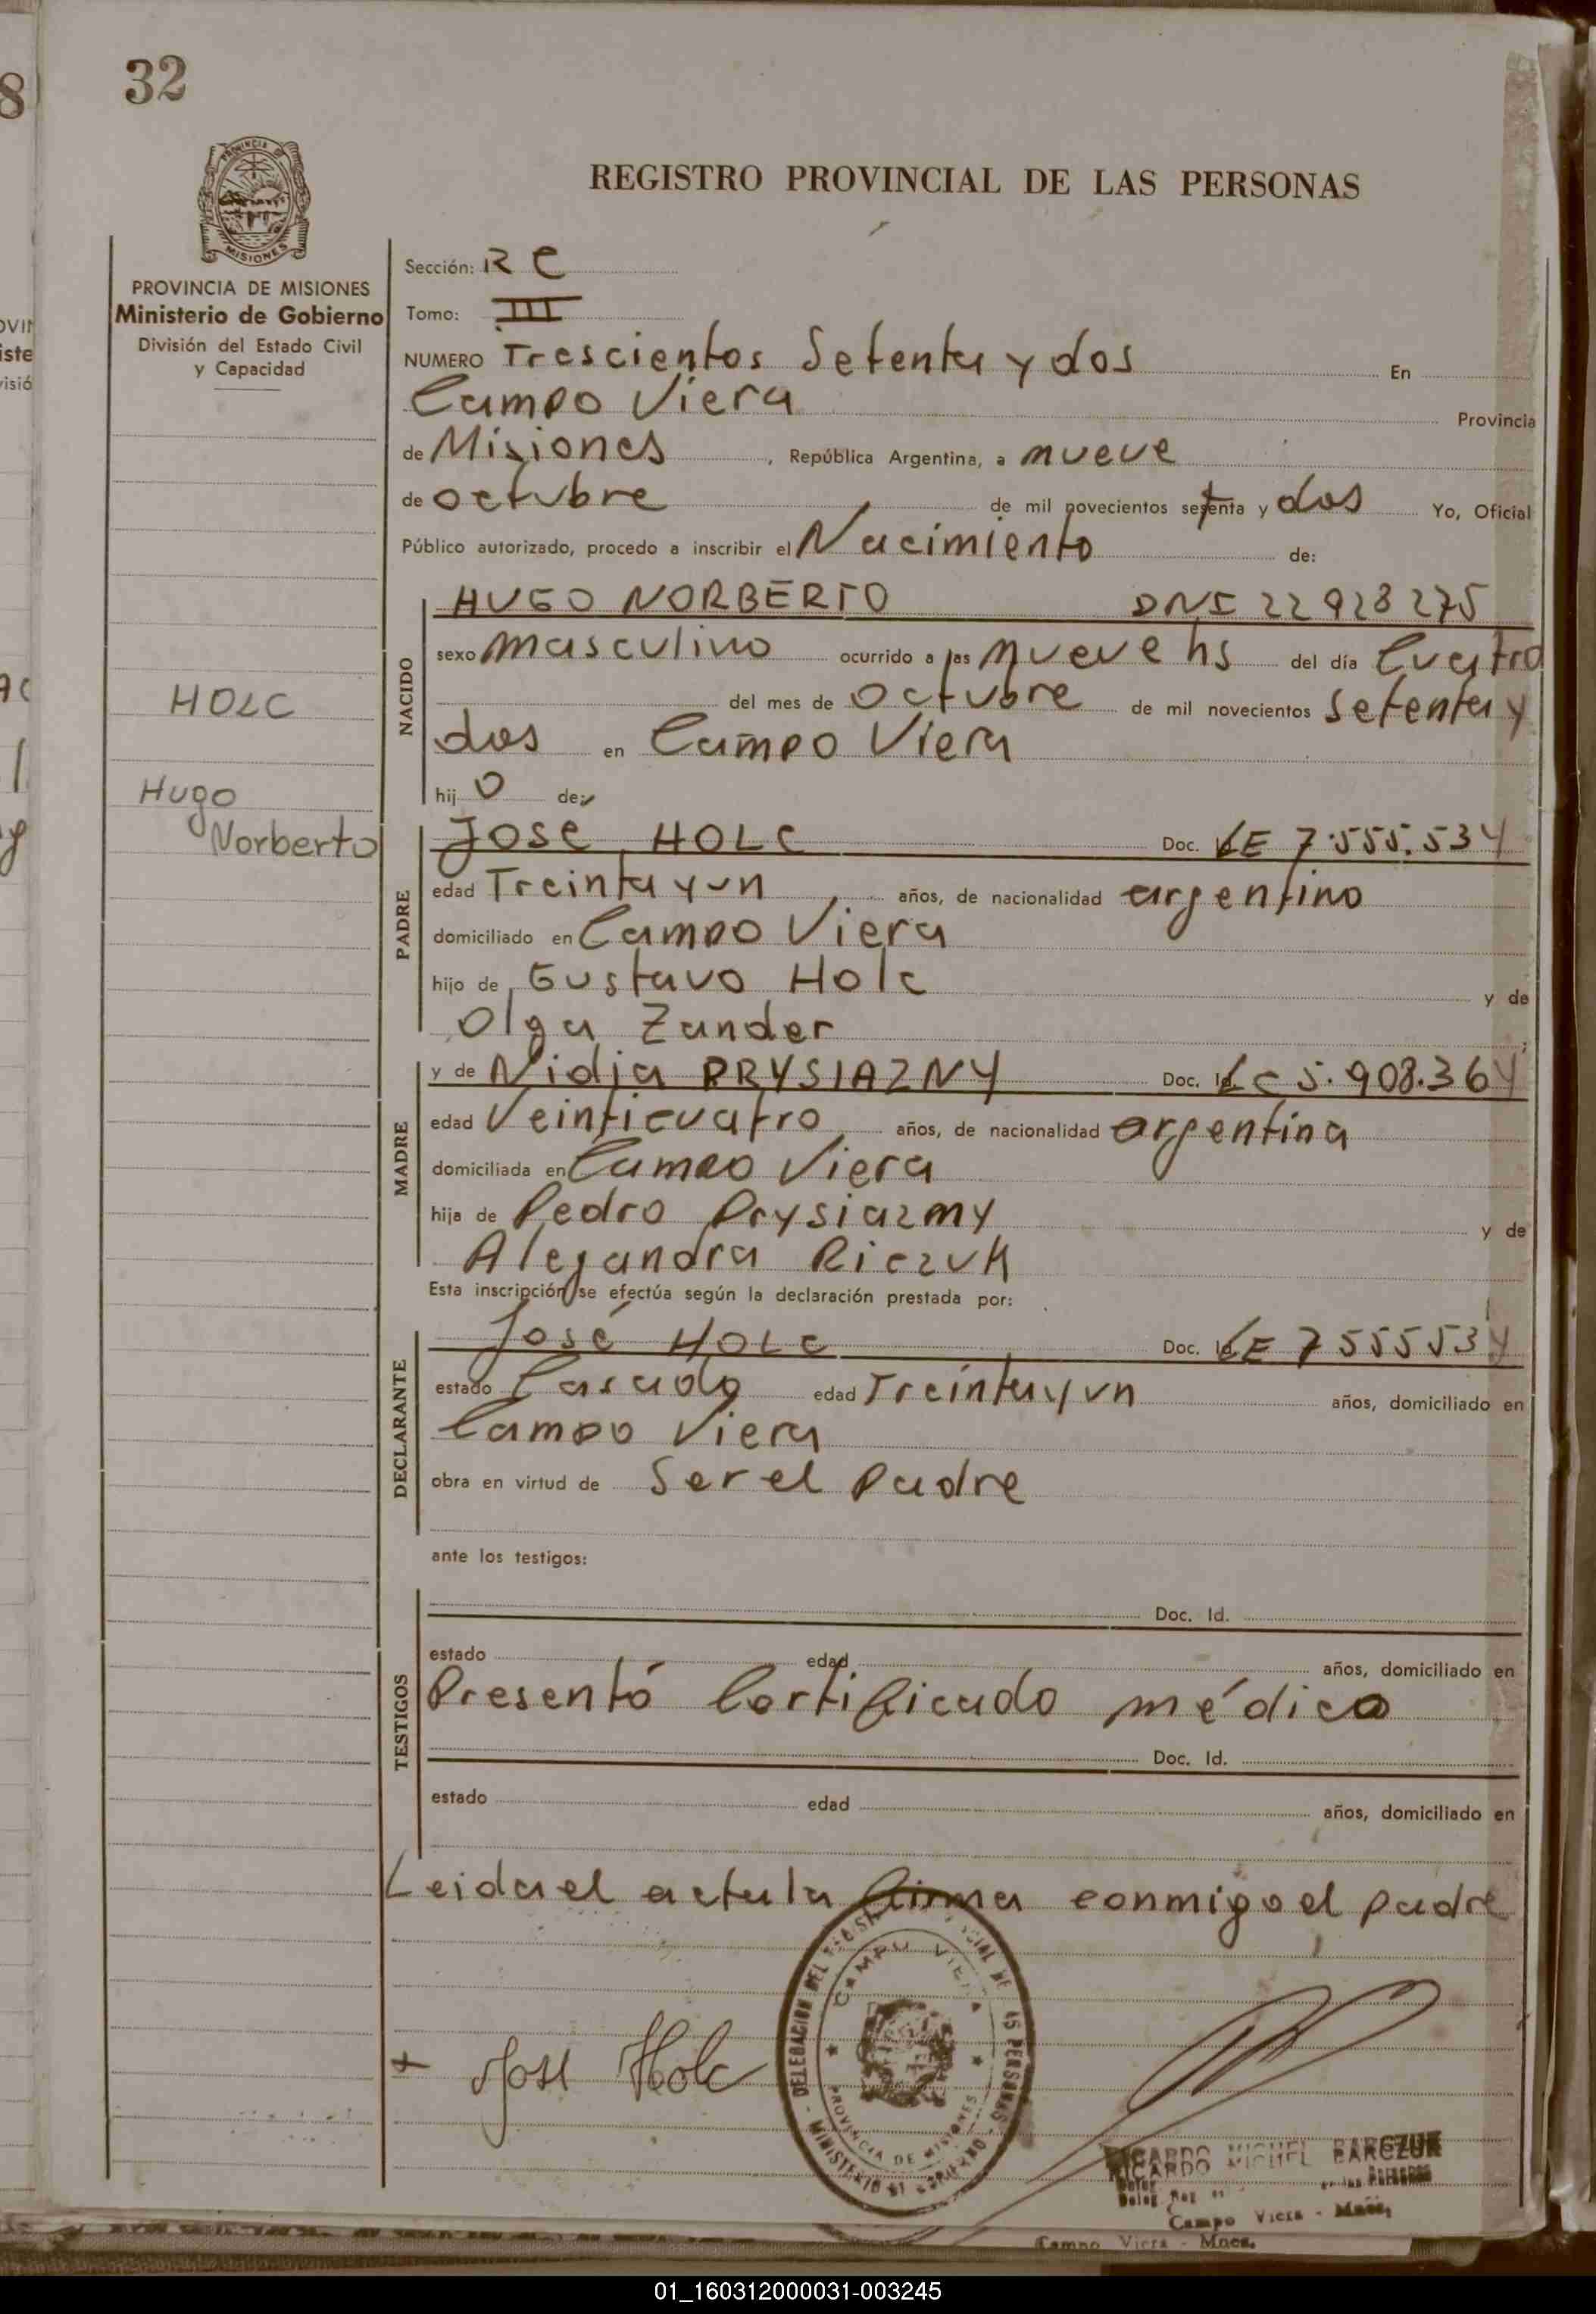 32
REGISTRO PROVINCIAL DE LAS PERSONAS
PROVINCIA DE MISIONES
Ministerio de Gobierno
División del Estado Civil
y Capacidad
Sección: R C
Tomo: III
NUMERO Trescientos Setenta y dos En
Campo Viera Provincia
de Misiones, República Argentina, a nueve
de octubre de mil novecientos setenta y dos Yo, Oficial
Público autorizado, procedo a inscribir el Nacimiento de:
NACIDO
HUGO NORBERTO DNI 22 928 275
sexo masculino ocurrido a las nueve hs del día Cuatro
del mes de Octubre de mil novecientos setenta y
dos en Campo Viera
hijo de:
HOLC
Hugo
Norberto
PADRE
José HOLC Doc. LE 7.555.534
edad Treinta y un años, de nacionalidad argentino
domiciliado en Campo Viera
hijo de Gustavo Holc y de
Olga Zander
MADRE
y de Nidia PRYSIAZNY Doc. Id. LC 5.908.364
edad Veinticuatro años, de nacionalidad argentina
domiciliada en Campo Viera
hija de Pedro Prysiazny y de
Alejandra Riczuk
Esta inscripción se efectúa según la declaración prestada por:
DECLARANTE
José HOLC Doc. Id. LE 7555534
estado Casado edad Treinta y un años, domiciliado en
Campo Viera
obra en virtud de Ser el padre
ante los testigos:
TESTIGOS
Doc. Id.
estado edad años, domiciliado en
Presentó Certificado médico
Doc. Id.
estado edad años, domiciliado en
Leida el acta la firma conmigo el padre
José Holc
DELEGACION DEL REGISTRO PROVINCIAL DE LAS PERSONAS
CAMPO VIERA
PROVINCIA DE MISIONES
MINISTERIO DE GOBIERNO
RICARDO MIGUEL BARCZUK
Campo Viera - Mnes.
Campo Viera - Mnes.
01_160312000031-003245